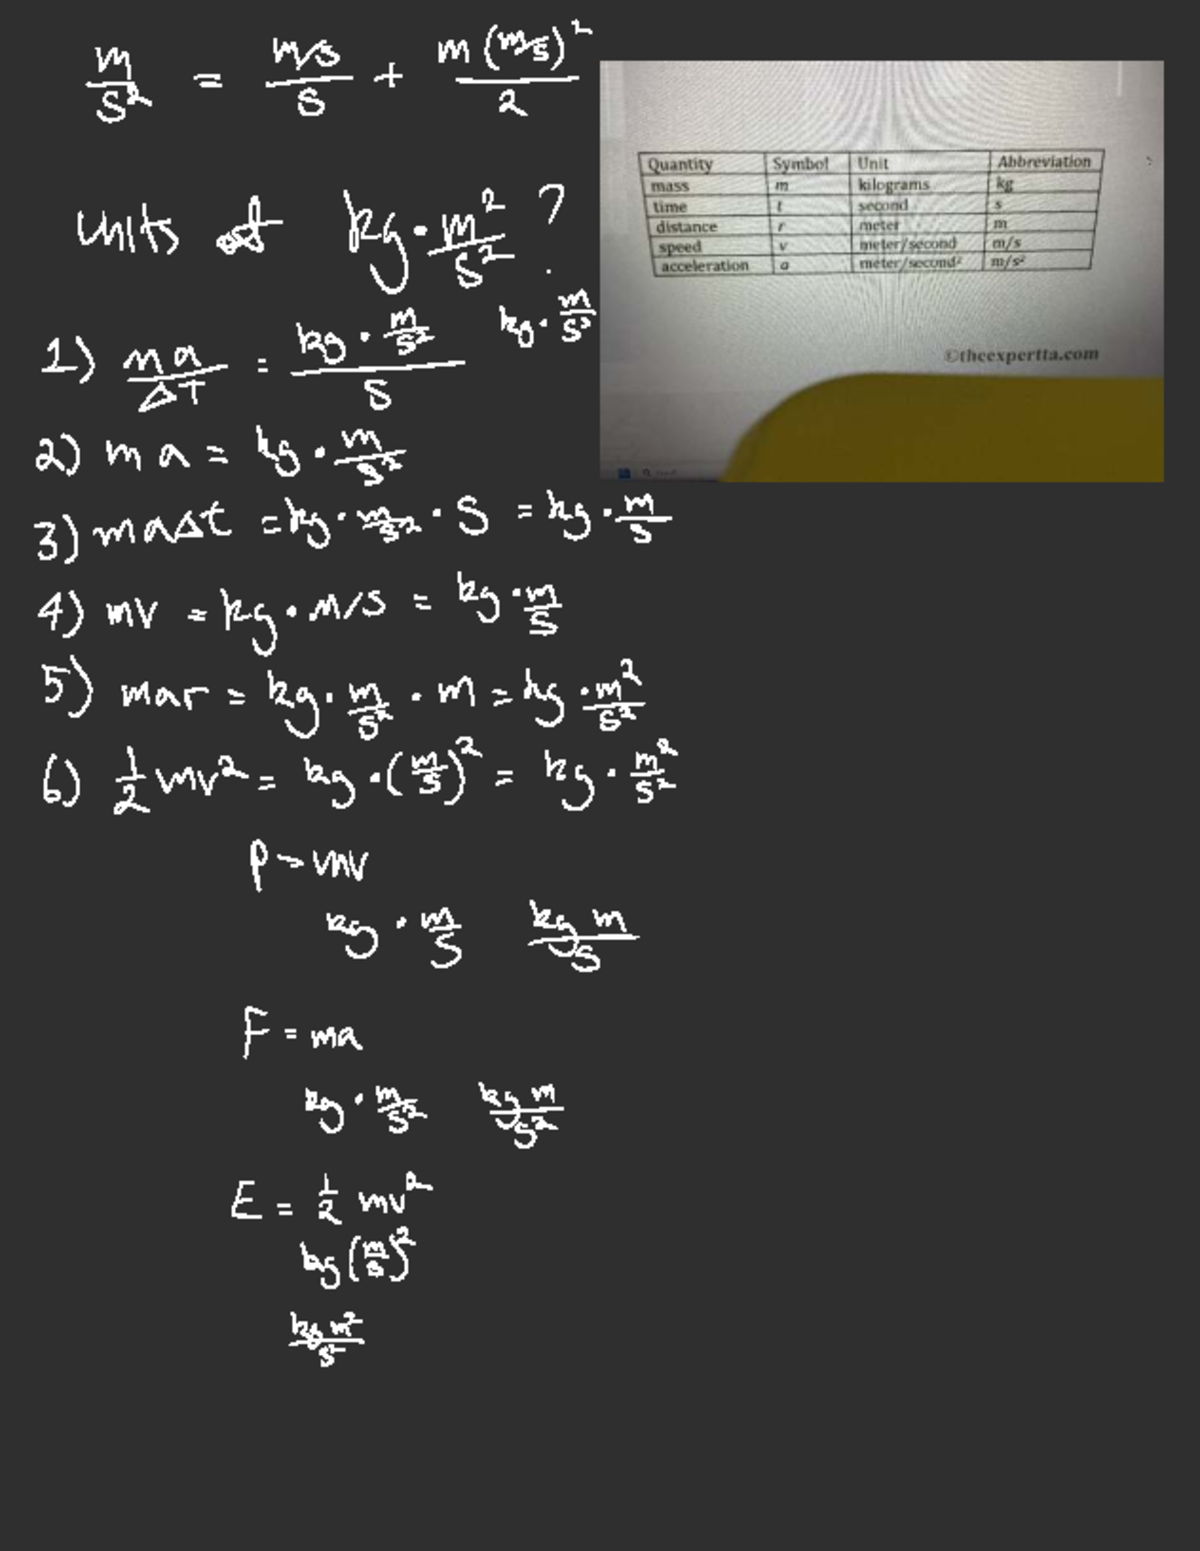 m/s² = m/s/s + m(m/s)²/2
units of kg·m²/s² ?
kg·m/s²
1) ma/ΔT = kg·m/s²/s
2) ma = kg·m/s²
3) maΔt = kg·m/s²·s = kg·m/s
4) mv = kg·m/s = kg·m/s
5) mar = kg·m/s²·m = kg·m²/s²
6) 1/2 mv² = kg·(m/s)² = kg·m²/s²
P → mv
kg·m/s kg m/s
F = ma
kg·m/s² kg m/s²
E = 1/2 mv²
kg(m/s)²
kg m²/s²
Quantity Symbol Unit Abbreviation
mass m kilograms kg
time t second s
distance r meter m
speed v meter/second m/s
acceleration a meter/second² m/s²
©theexpertta.com